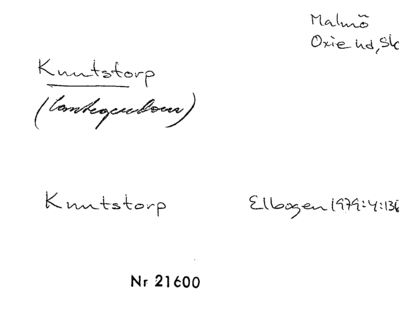 Malmö
Oxie hd, Sk
Knutstorp
(lantegendom)
Knutstorp Elbogen 1979:4:136
Nr 21600